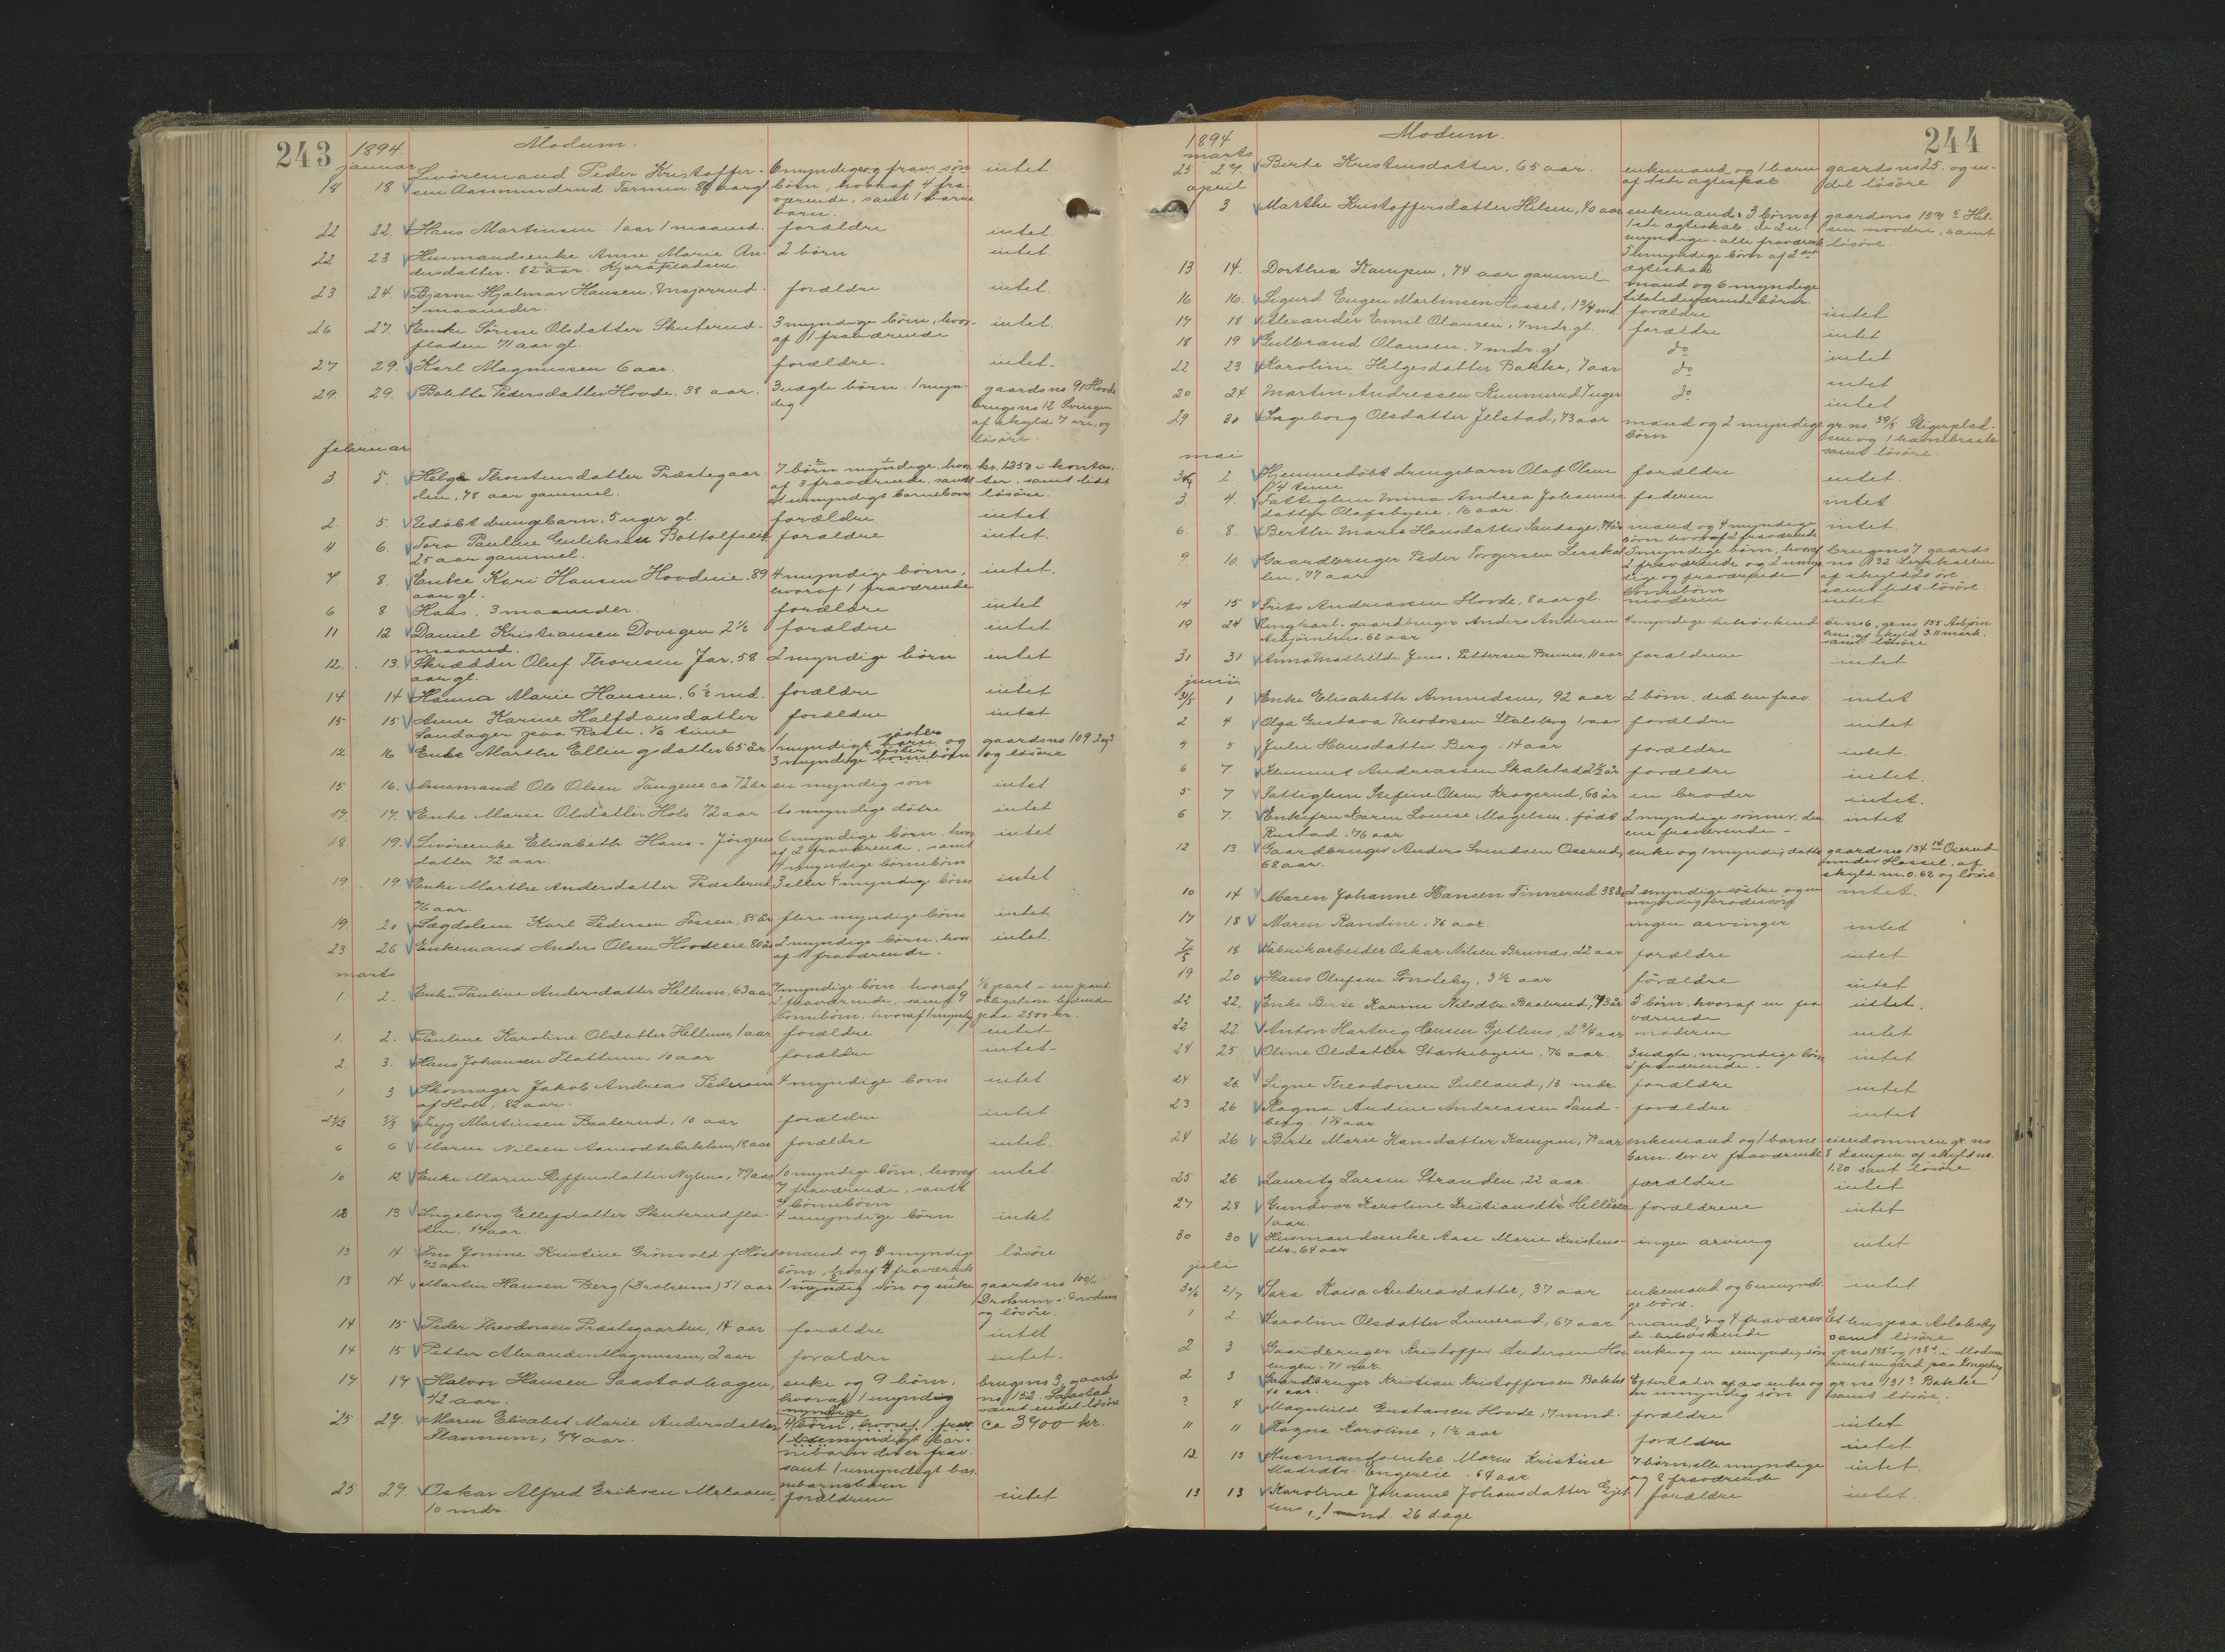 243
1894.
Modum.
januar
18 18 Livöremand Peder Kristoffer- 6 myndige og frav. søn intet.
sen Aasmundrud Tormin. 89 aar gl börn, hvoraf 4 fra-
værende, samt 1 barne
barn.
22 22. Hans Martinsen. 1 aar 1 maaned. forældre intet.
22 23 Husmandsenke Anne Marie An- 2 börn intet.
dersdatter. 82 aar.
23 24. Bjarne Hjalmar Hansen. forældre intet.
9 maaneder.
26 27. Enke Sörine Olsdatter Skuterud- 3 myndige börn, hvor- intet.
fladen 71 aar gl. af 1 fraværende
27 29. Karl Magnussen 6 aar. forældre. intet.
29. 29. Bolette Pedersdatter Hovde. 38 aar. 3 uægte börn. 1 myn- gaards no 91 Hovde
dig brugs no 12 Svingen
af skyld 7 öre, og
lösöre.
februar
3 5. Helga Thorstensdatter Præstegaar- 7 börn myndige, hvor kr. 1250 i kontan-
den, 78 aar gammel. af 3 fraværende. samt ter, samt lidt
umyndigt barnebarn lösöre.
2. 5. Udöbt drengebarn. 5 uger gl. forældre intet
4 6. Tora Pauline Guliksen Bottolfsen forældre intet.
25 aar gammel.
7. 8. Enke Kari Hansen Hovdeie. 89 4 myndige börn, intet.
aar gl. hvoraf 1 fraværende
6 8 Hans. 3 maaneder. forældre intet
11 12 Daniel Kristiansen Dovigen 2½ forældre intet
maaned.
12. 13. Skrædder Oluf Thoresen Jar. 58 2 myndige börn intet
aar gl.
14 14 Hanna Marie Hansen. 6½ md. forældre intet
15 15 Anne Karine Halfdansdatter forældre intet
Sandager paa Kaste. ½ time
12 16 Enke Marthe Ellingsdatter 65 år 1 myndigt søster og gaards no 109
3 myndige søster börn og lösöre
15 16. Husmand Ole Olsen Tangene ca 72 år en myndig sön intet
17. 17. Enke Marie Olsdatter Hole 72 aar to myndige dötre intet
18. 19. Livöreenke Elisabeth Hans-Jörgens 6 myndige börn. hvor intet
datter 72 aar. af 2 fraværende, samt
14 myndige börnebörn
19 19. Enke Marthe Andersdatter Præsterud 3 eller 4 myndig börn intet
76 aar.
19. 20 Lægdslem Karl Pedersen Fossen, 85 år flere myndige börn intet
23 26 Enkemand Anders Olsen Hovdeeie. 80 år 2 myndige börn. hvor intet
af 1 fraværende.
marts
1. 2. Enke Pauline Andersdatter Hellum, 63 aar 7 myndige börn. hvoraf ½ part i en pant
2 fraværende, samt 9 obligation lydende
börnebörn. hvoraf 1 myndig paa 2500 kr.
1. 2. Pauline Karoline Olsdatter Hellum, 1 aar forældre intet
2 3. Hans Johansen Flattum, 10 aar forældre intet.
1 3 Skomager Jakob Andreas Pedersen 4 myndige börn intet
af Hole, 82 aar.
28/2 5/3 Tryg Martinsen Baalerud, 10 aar forældre intet
6 6 Maren Nilsen Aamodtsbakken, 18 aar forældre intet.
10 12 Enke Maren Steffensdatter Nyhus, 79 aar 10 myndige börn. hvoraf intet.
7 fraværende, samt
börnebörn
12 13 Ingeborg Ellefsdatter Skuterudfla- 4 umyndige börn intet
den. aar.
13 14 Fru Jonine Kristine Grönvold f. Höst mand og 4 myndige lösöre
72 aar börn, hvoraf 4 fraværende
13 14 Martin Hansen Berg (Drolsum) 51 aar 1 myndig sön og enke gaards no 100/1
Drolsum i Modum
og lösöre.
14 15 Peder Theodorsen Præstegaarden, 14 aar forældre intet
14 15 Petter Alexander Magnussen, 2 aar forældre intet.
17 17 Halvor Hansen Saastadhagen, enke og 9 börn. brugs no 3 gaards
42 aar. hvoraf 1 myndig no 152. Saastad
samt endel lösöre
25 27. Maren Elisabet Marie Andersdatter myndige
4 börn, hvoraf 1 frav. ca 3900 kr.
Flannum, 74 aar. 1 umyndigt bar-
nebarn der er frav.
samt 1 umyndigt bar-
nebarnsbarn
25 27. Oskar Alfred Eriksen Melaaen, forældrene intet
10 mdr.
244
1894
Modum.
marts
25 27. Birte Kristensdatter, 65 aar. enkemand og 1 barn gaards no 25. og en-
af 1ste ægteskab del lösöre
april
1 3 Marthe Kristoffersdatter Hilsen, 40 aar enkemand. 3 börn af gaards no 159 Hil-
1ste ægteskab. de 2 u- sen nordre, samt
myndige. alle fraværende lösöre.
5 umyndige börn af 2det
ægteskab
13 14. Dorthea Kampen, 74 aar gammel mand og 6 myndige
tilstedeværende börn.
16 16. Sigurd Eugen Martinsen Hassel, 1¾ md forældre intet
17 18 Alexander Emil Olausen, 7 mdr gl. forældre intet
18 19 Gulbrand Olausen. 7 mdr. gl do intet
22 23 Karoline Helgesdatter Bakke, 7 aar do intet
20 24 Martin Andreassen Rummerud 7 uger do intet
29 30 Ingeborg Olsdatter Jelstad, 73 aar mand og 2 myndige gr. no 50/5 Stigerplad-
börn sen
samt lösöre
mai
30/4 2. Hjemmedöbt drengebarn Olaf Olsen forældre intet.
1/4 time
3. 4. Fattiglem Mina Andrea Johannes- faderen intet
datter Olafsbyeie, 16 aar.
6. 8. Berthe Marie Hansdatter Sandager, 74 år mand og 4 myndige intet.
börn, hvoraf 2 fraværende
9. 10. Gaardbruger Peder Torgersen Lerskal- 5 myndige börn, hvoraf brugs no 7 gaards
len, 77 aar. 2 fraværende og 2 umyn- no 132 Lerskallen
dige og fraværende af skyld 25 öre
börnebörn samt lidt lösöre.
14 15 Frits Andreassen Hovde. 8 aar gl. moderen intet.
19 24 Ungkarl. gaardbruger Anders Andersen 4 myndige helsöskend br. no 6, gr. no 155 Asbjörn-
Asbjörnhus. 62 aar hus, af skyld 3.11 mark.
samt lösöre
31 31 Anna Mathilde Jens. Pettersen Brunes, 11 aar forældrene intet
juni
31/5 1 Enke Elisabeth Amundsen, 92 aar 2 börn. det ene frav. intet
2 4 Olga Gustava Theodorsen Stalsberg 1 aar forældre intet
4 5 Julie Hansdatter Berg. 14 aar forældre intet.
6 7. Klemmet Andreassen Skalstad 2½ år forældre intet.
5 7 Fattiglem Stefine Olsen Krogerud, 60 år en broder intet.
6 7. Enkefru Karen Louise Magelsen, födt 2 myndige sönner, den intet
Rustad. 76 aar ene fraværende.
12 13 Gaardbruger Anders Svendsen Oserud, enke og 1 myndig datter gaards no 134/14 Oserud
68 aar. under Hassel, af
skyld m. 0.62 og lösöre.
10 14 Maren Johanne Hansen Finnerud 38 år 2 myndige söstre og en intet.
myndig brodersön
17 18 Maren Randine. 76 aar. ingen arvinger intet
18 Fabrikarbeider Oskar Nilsen Brunes, 22 aar forældre intet
19 20 Hans Olufsen Tonsteby, 3½ aar forældre intet
22 22. Enke Birte Karine Nilsdtr. Baalerud, 73 år 5 börn. hvoraf en fra intet.
værende
22 22. Anton Hartvig Hansen Gjethus, 2¾ aar moderen intet
24 25 Oline Olsdatter Stærkebyeie, 76 aar. 3 uægte, myndige börn intet
2 fraværende.
24 26 Signe Theodorsen Sulland, 18 mdr. forældre intet
23 26 Ragna Andine Andreassen Sand- forældre intet
berg. 1¼ aar
24 26 Birte Marie Hansdatter Kampen, 71 aar enkemand og 1 barne- eiendommen gr. no
barn. der er fraværende 8 Kampen af skyld m.
1.20 samt lösöre
25 26 Lauritz Larsen Stranden, 22 aar. forældre intet
27 28 Gundvor Karoline Kristiansdtr Hellesen forældrene intet
1 aar.
30 30 Husmandsenke Aase Marie Kristens- ingen arving intet
dtr. 64 aar
juli
30/6 2/7 Sara Kaisa Andreasdatter, 37 aar enkemand og 6 umyndi- intet
ge börn.
1 2. Karoline Olsdatter Linnerud, 67 aar mand, og 4 fraværen- Et hus paa Aslaksby
de helsöskende samt lösöre
2 3 Gaardbruger Kristoffer Andersen Hov- enke og en umyndig sön gr. no 138 og 138 i Modum
engen. 71 aar. samt en gård paa Kongsberg
2 3 Gaardbruger Kristian Kristoffersen Bakke Efterlader af as enke og gr no 131 Bakke
40 aar. en umyndig sön samt lösöre.
? 4 Magnhild Gustavsen Hovde, 7 mnd. forældre intet
11 11 Ragna Karoline, 1½ aar forældre intet
12 13 Husmandsenke Maren Kristine 7 börn, alle myndige intet.
Madsdtr. Engereie. 64 aar og 2 fraværende
13 13 Karoline Johanne Johansdatter Gjet- forældre intet.
hus, 1 mnd. 26 dage